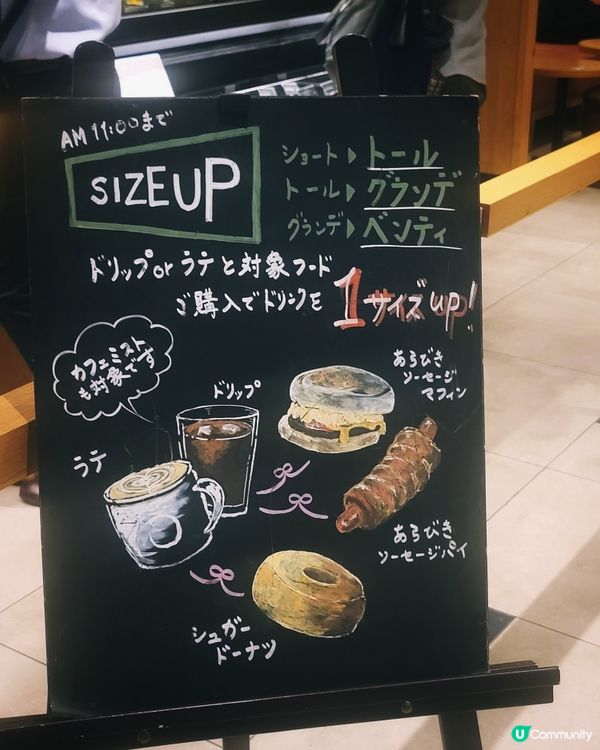 AM 11:00まで
SIZEUP
ショート▶トール
トール▶グランデ
グランデ▶ベンティ
ドリップorラテと対象フード
ご購入でドリンクを1サイズup!
カフェミスト
も対象です
ドリップ
あらびき
ソーセージ
マフィン
ラテ
あらびき
ソーセージパイ
シュガー
ドーナツ
U Community